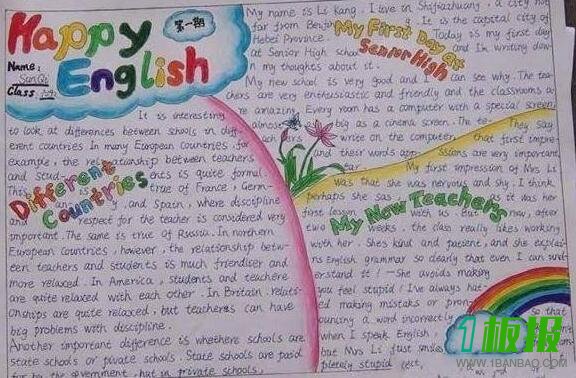 Happy
English
第一期
Name:
Class
My name is Li Kang. I live in Shijiazhuang, a city not
far from Beijing. It is the capital city of
Hebei Province. Today is my first day
at Senior High school and I'm writing down
my thoughts about it.
My First Day at
Senior High
My new school is very good and I can see why. The tea-
chers are very enthusiastic and friendly and the classrooms a-
re amazing. Every room has a computer with a special screen,
almost as big as a cinema screen. The te-
achers write on the computer, and their words app
They say
that first impre-
ssions are very important.
My first impression of Mrs Li
was that she was nervous and shy. I think
perhaps she was, as it was her
first lesson with us. But now, after
two weeks, the class really likes working
with her. She's kind and patient, and she explai-
ns English grammar so clearly that even I can und-
erstand it! - She avoids making
you feel stupid! I've always hat-
ed making mistaks or pron-
ouncing a word incorrectly
when I speak English, so that
but Mrs Li just smiles,
completely stupid
My New Teachers
It is interesting
to look at differences between schools in diff-
erent countries. In many European countries for
example, the relationship between teachers
and students is quite formal.
This is true of France, Germ-
any, and Spain, where discipline
and respect for the teacher is considered very
important. The same is true of Russia. In northern
European countries, however, the relationship betw-
een teachers and students is much friendlier and
more relaxed. In America, students and teachere
are quite relaxed with each other. In Britain, relati-
onships are quite relaxed, but teachers can have
big problems with discipline.
Another important difference is wheather schools are
state schools or private schools. State schools are paid
for by the government, but in private schools,
Different
Countries
1板报
WWW.1BANBAO.COM